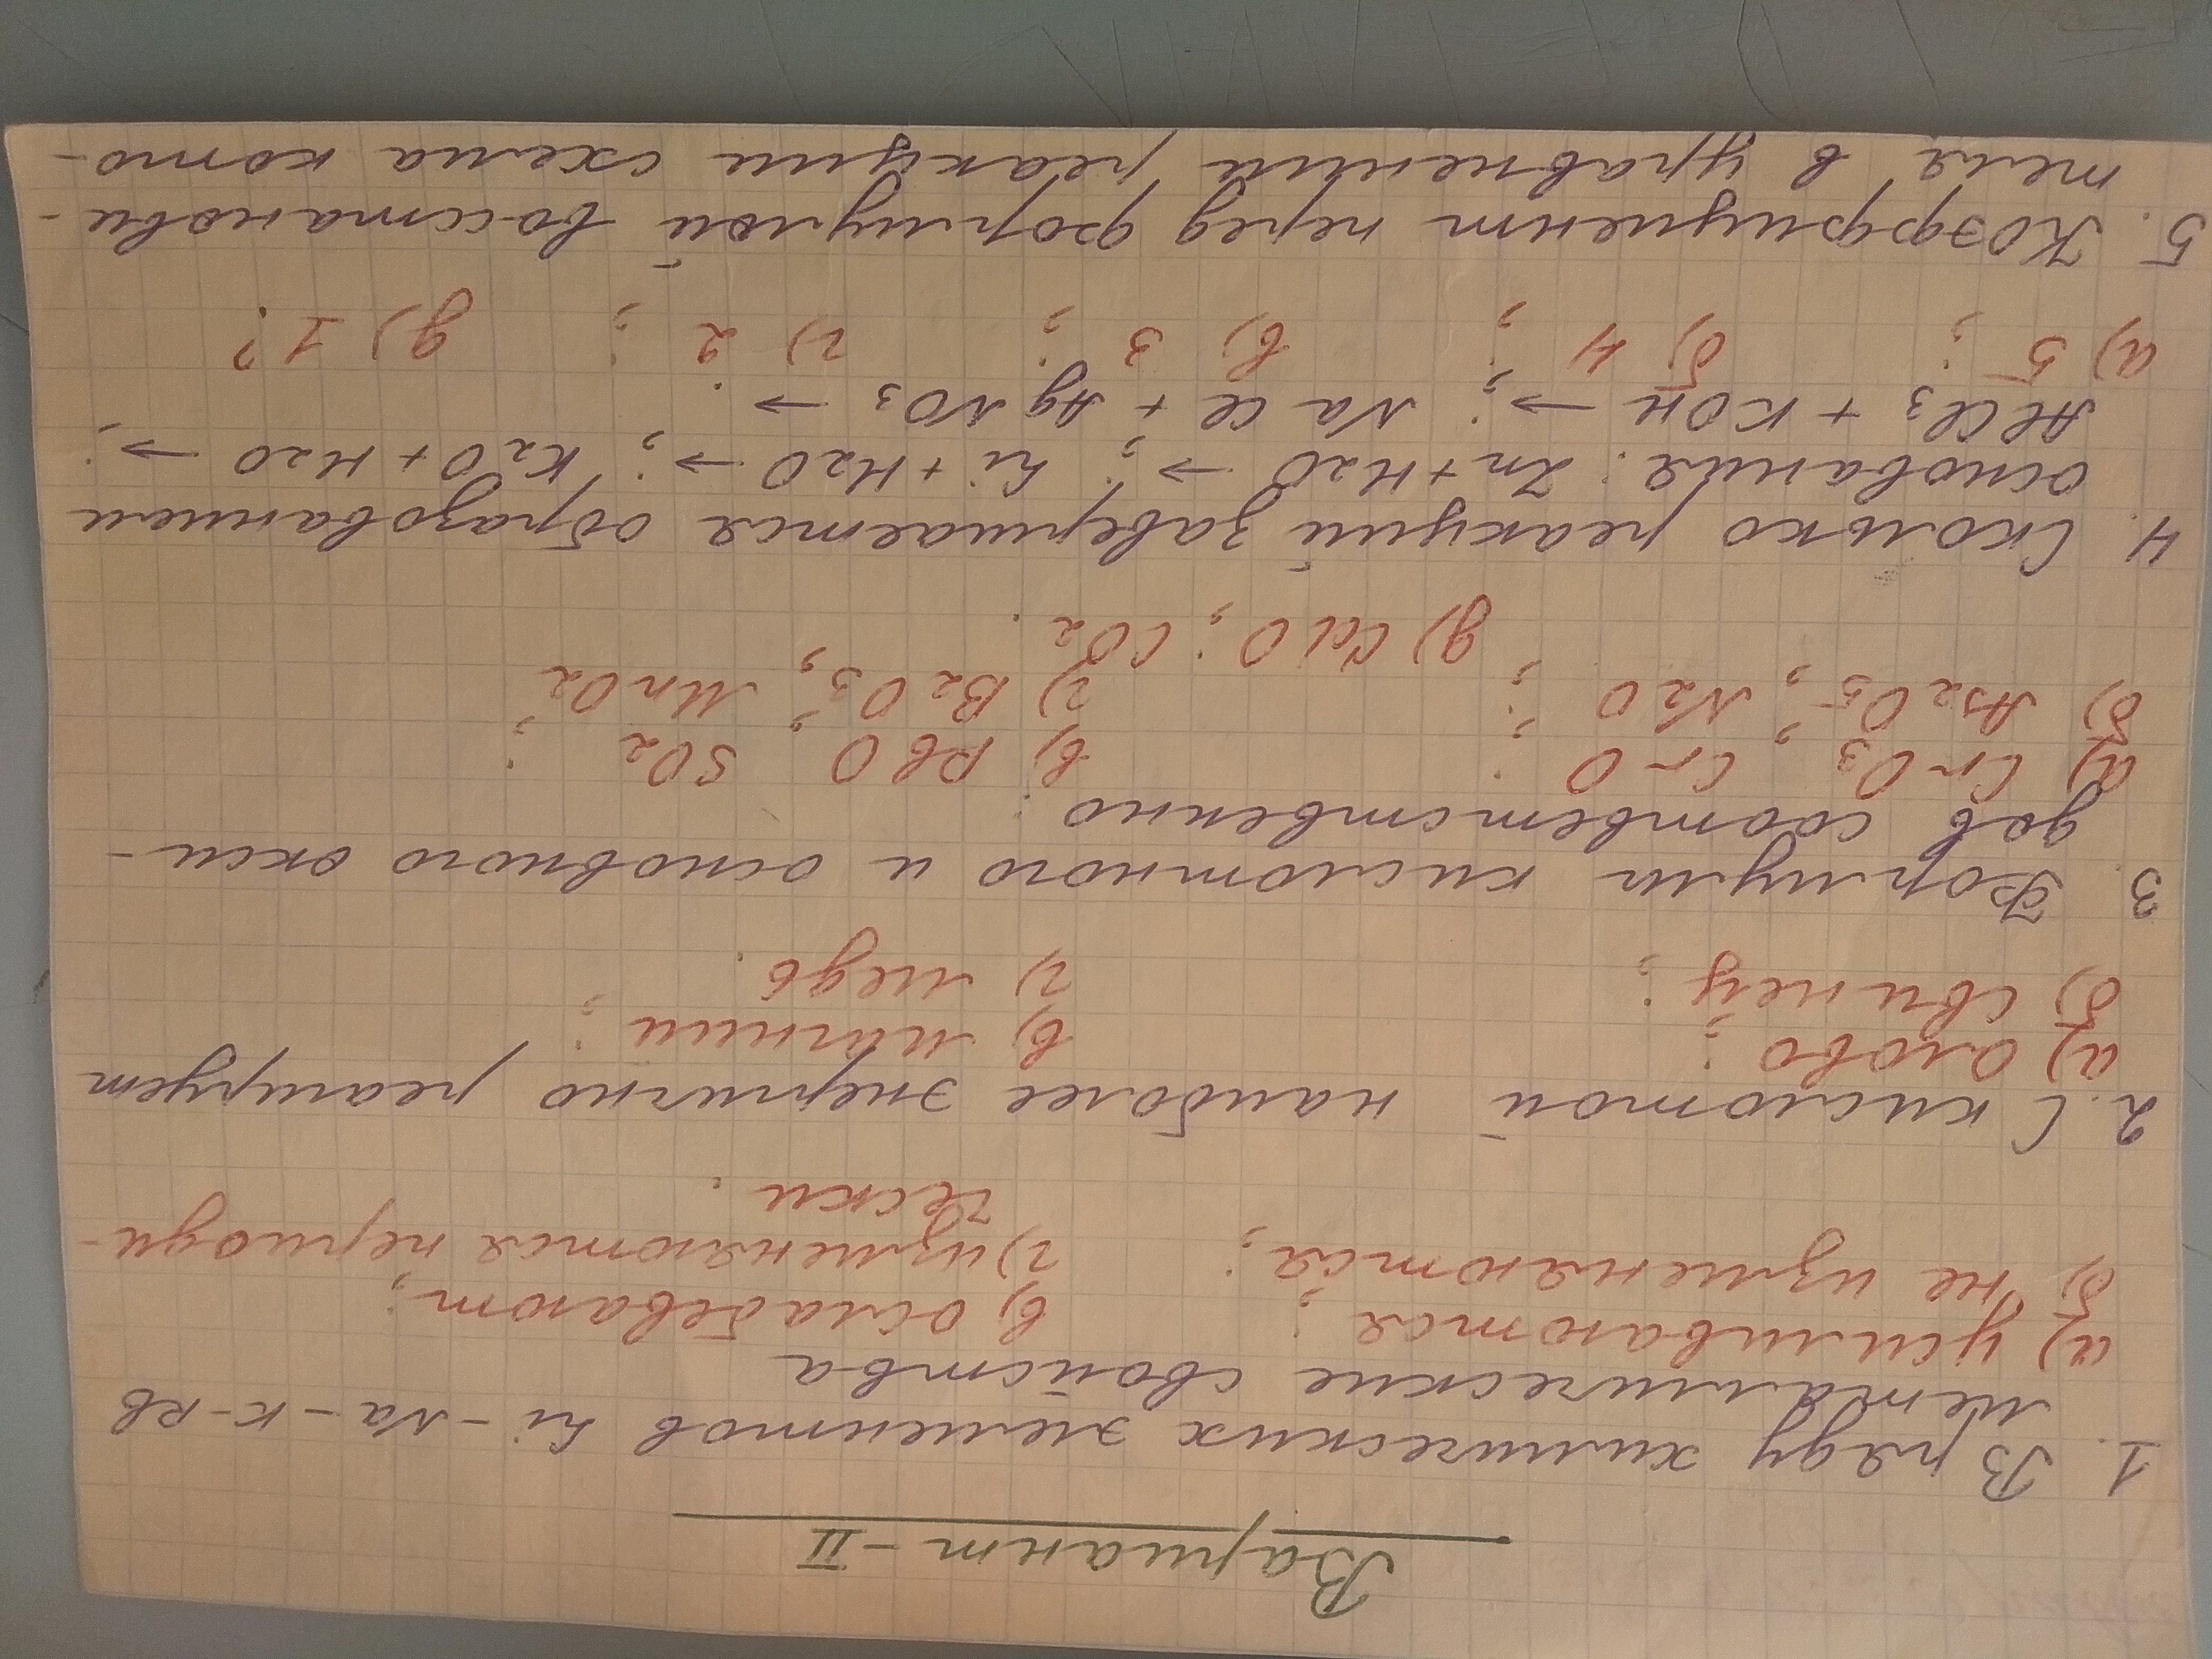 Вариант - II
1. В ряду химических элементов Li - Na - K - Rb
металлические свойства
а) усиливаются; в) ослабевают;
б) не изменяются; г) изменяются периоди-
чески.
2. С кислотой наиболее энергично реагирует
а) олово; в) магний;
б) свинец; г) медь.
3. Формулы кислотного и основного окси-
дов соответственно:
а) CrO3, CrO; в) PbO SO2;
б) As2O5, N2O; г) B2O3, MnO2
д) CdO, CO2.
4. Сколько реакций завершается образованием
основания: Zn + H2O →; Li + H2O →; K2O + H2O →;
AlCl3 + KOH →; NaCl + AgNO3 →:
а) 5; б) 4; в) 3; г) 2; д) 1?
5. Коэффициент перед формулой восстанови-
теля в уравнении реакции схема кото-